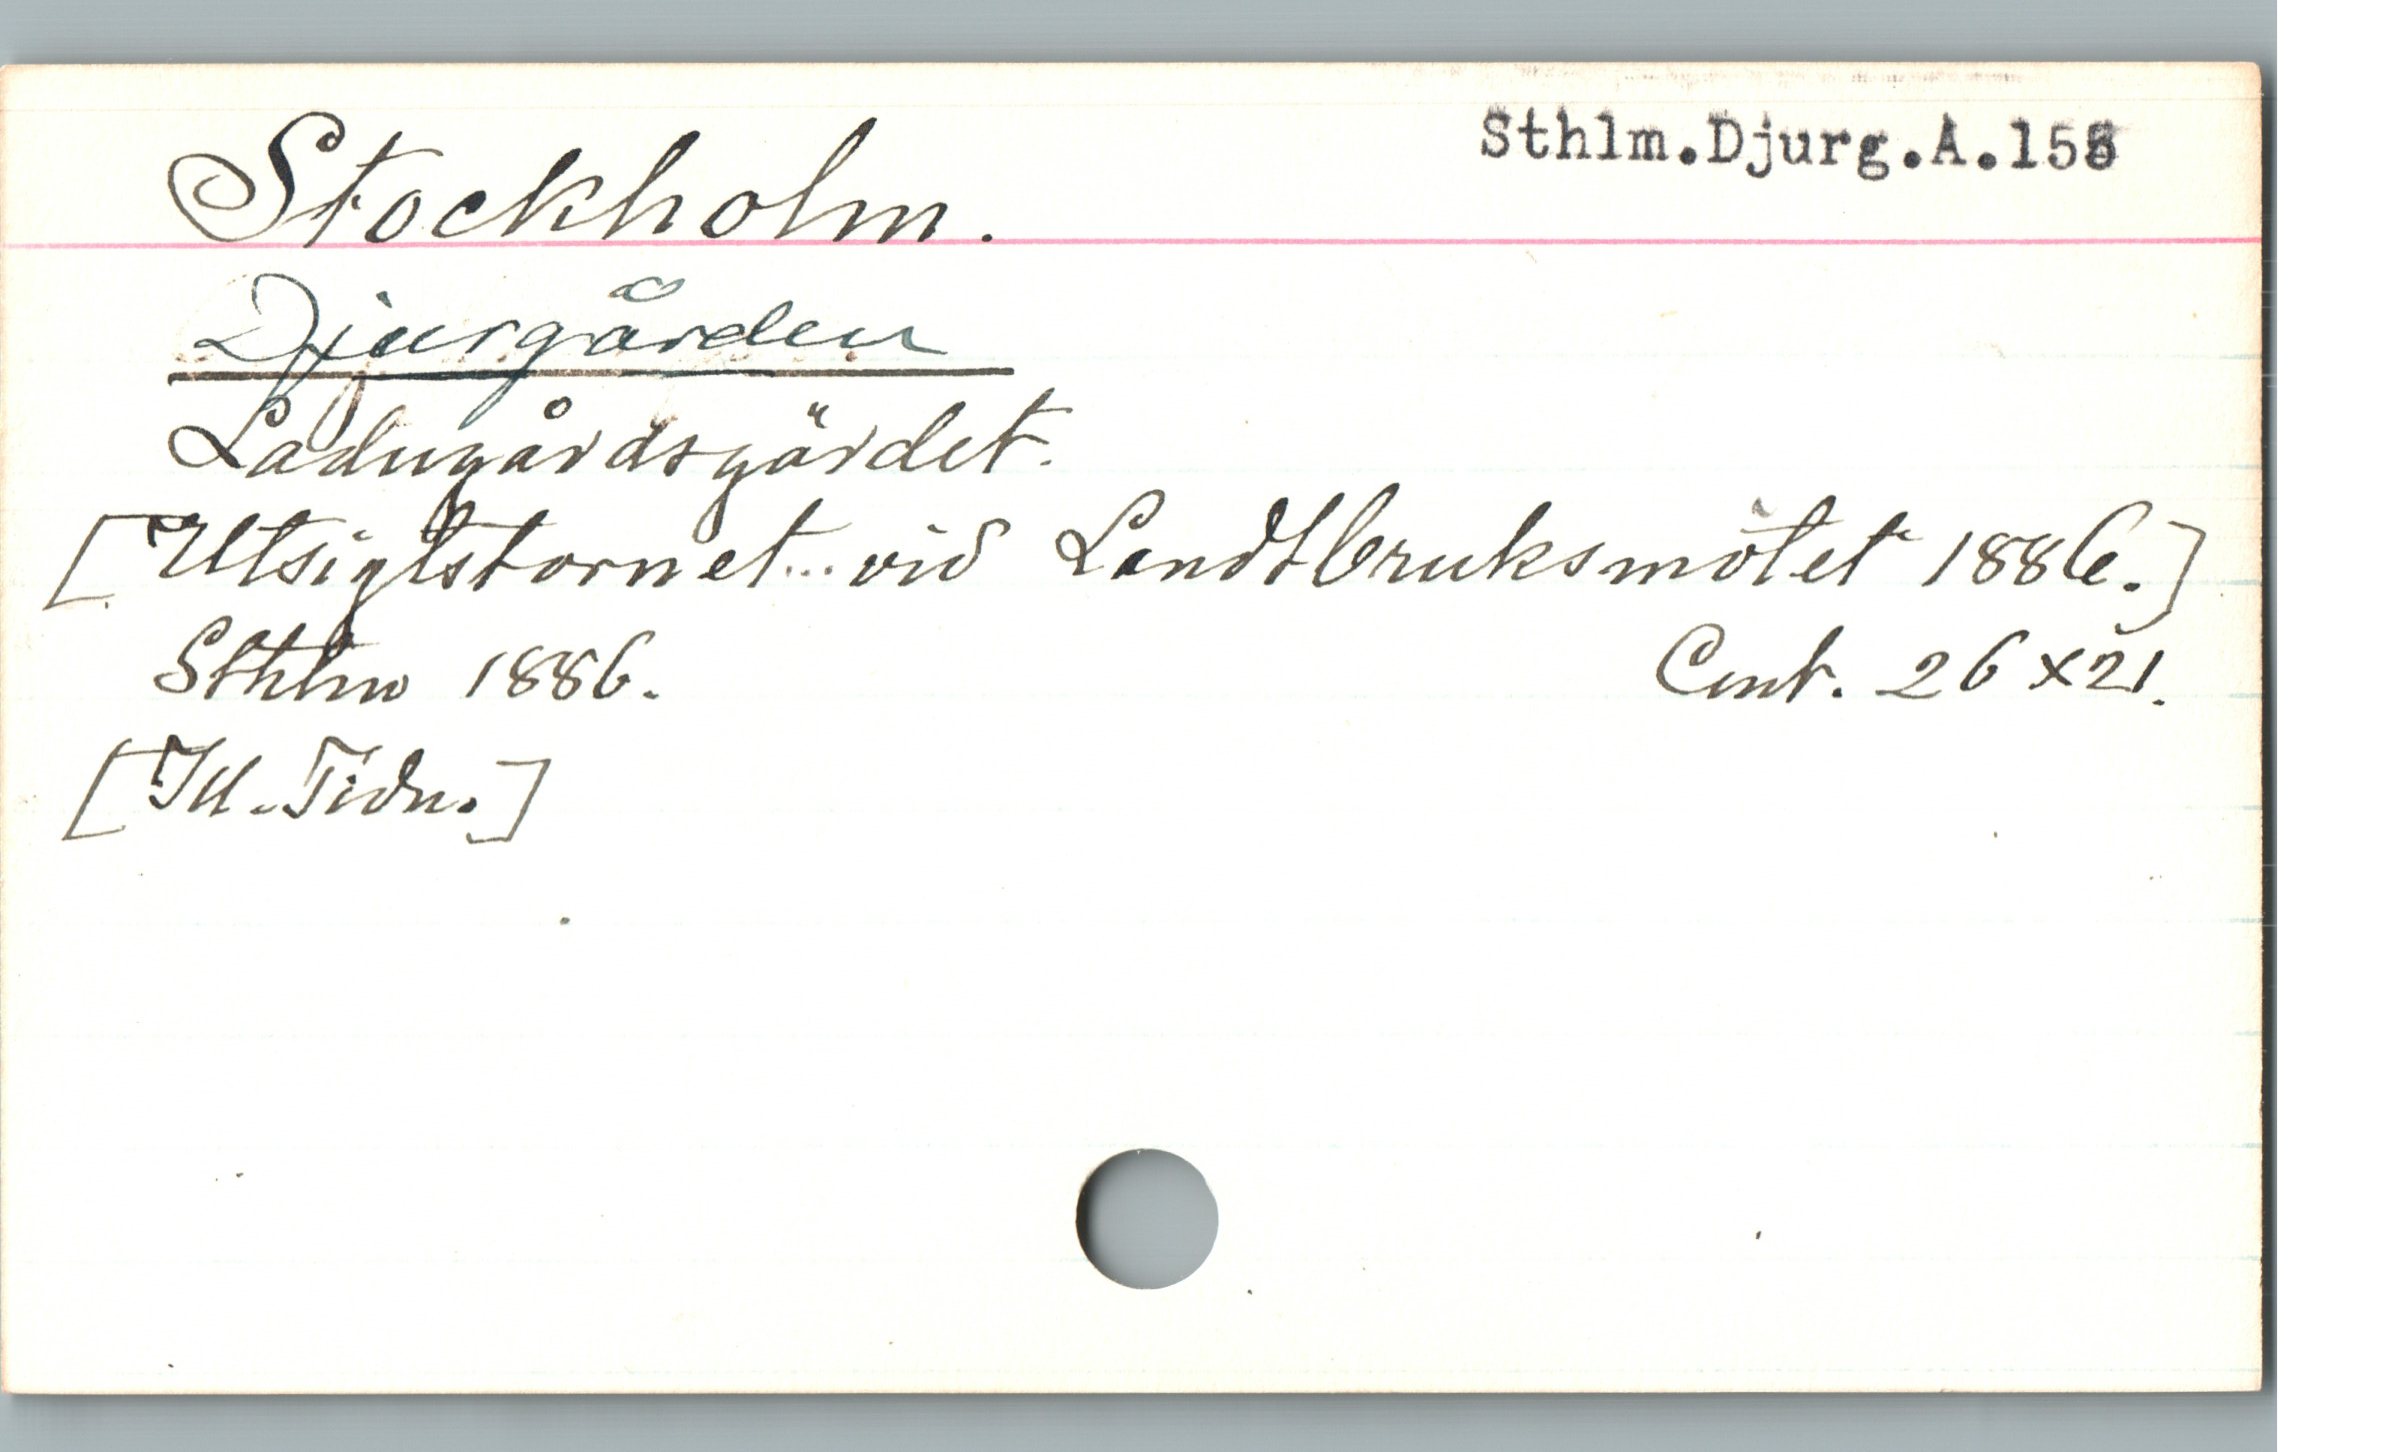 Stockholm.
Sthlm.Djurg.A.155
Djurgården
Ladugårdsgärdet.
[Utsigtstornet... vid Landtbruksmötet 1886.]
Sthlm 1886.
Cent. 26 x 21.
[Ill. Tidn.]